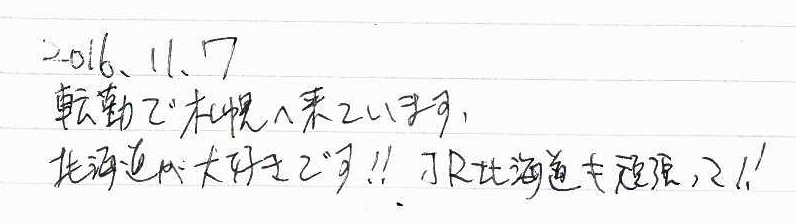 2016、11、7
転勤で札幌へ来ています、
北海道が大好きです!! JR北海道も頑張って!!